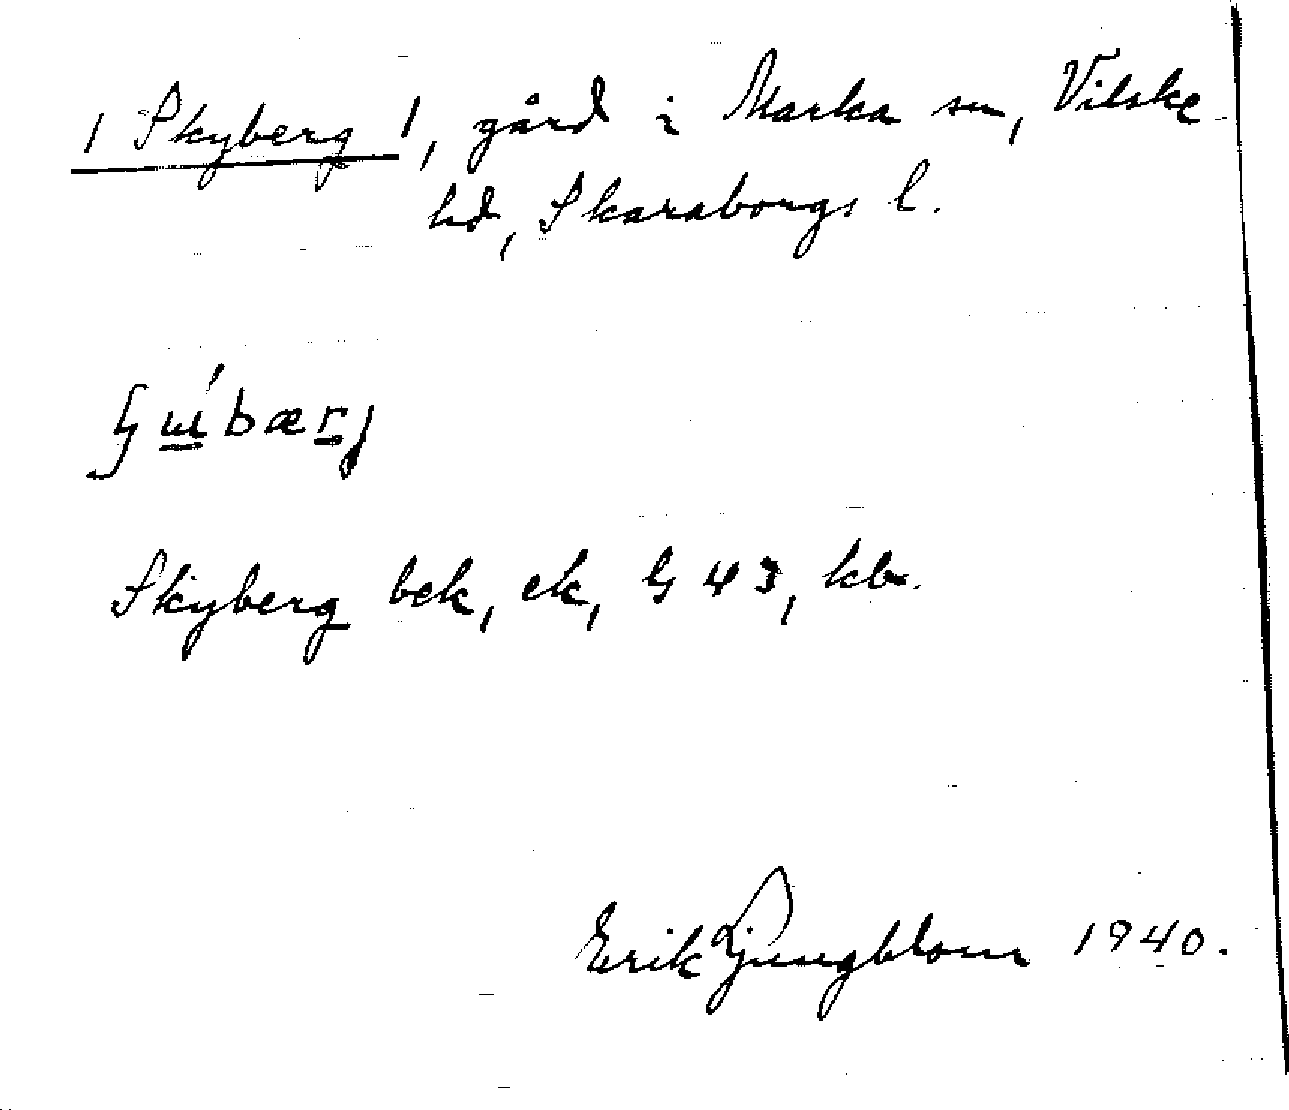 / Skyberg /, gård i Marka sn, Vilske
hd, Skaraborgs l.
Skyberg bek, ek, G 43, kbr.
Erik Ljungblom 1940.